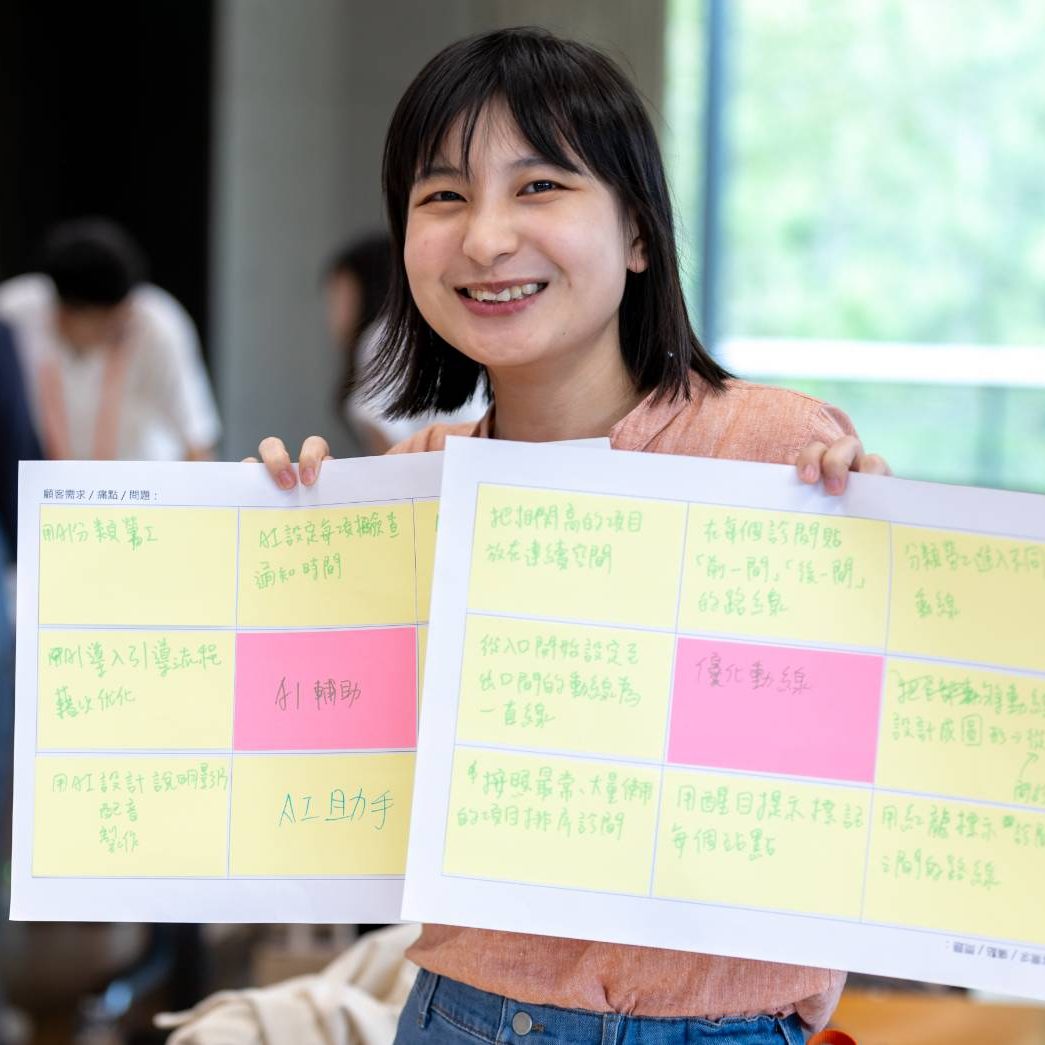 顧客需求 / 痛點 / 問題：
用AI分類勞工
AI設定每項檢查
通知時間
用AI導入引導流程
藉以优化
AI 輔助
用AI設計說明影
配音
製作
AI 助手
把相関高的項目
放在連續空間
在每個診間貼
「前一間」「後一間」
的路線
分類勞工進入不同
動線
從入口開始設定至
出口間的動線為
一直線
優化動線
動線
設計成圓形→從
按照最常、大量使用
的項目排序診間
用醒目提示標記
每個站點
用紅龍提示
之間的路線
需求 / 痛點 / 問題：